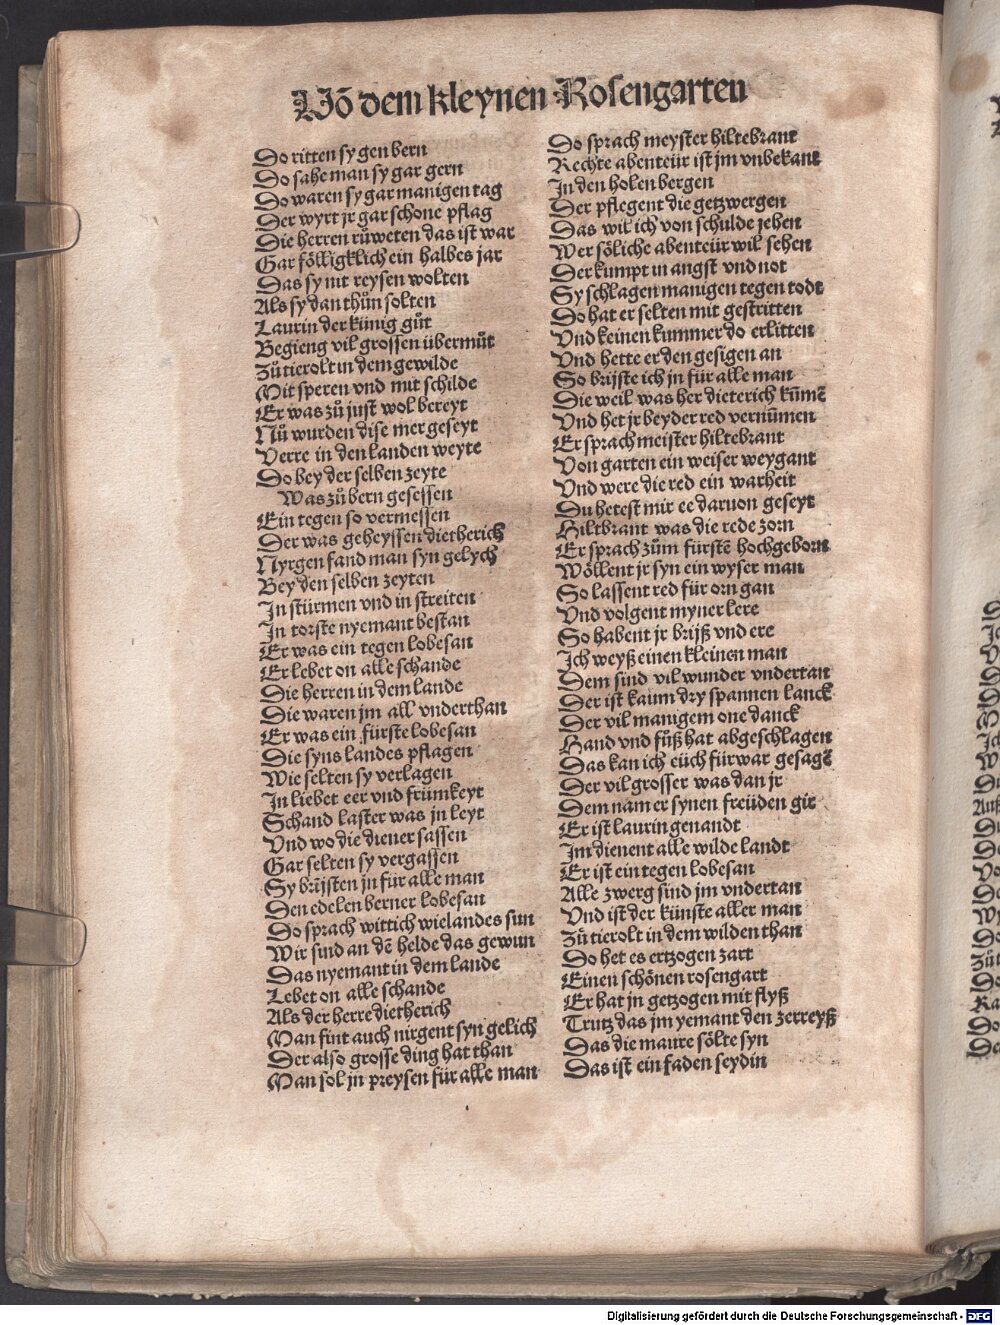 Võ dem kleynen Rosengarten
Do ritten sy gen bern
Do sahe man sy gar gern
Do waren sy gar manigen tag
Der wyrt jr gar schone pflag
Die herren růweten das ist war
Gar fölligklich ein halbes jar
Das sy nit reysen wolten
Als sy dan thůn solten
Laurin der künig gůt
Begieng vil grossen übermůt
Zů tierolt in dem gewilde
Mit speren vnd mit schilde
Er was zů just wol bereyt
Nů wurden dise mer geseyt
Verre in den landen weyte
Do bey der selben zeyte
Was zů bern gesessen
Ein tegen so vermessen
Der was geheyssen dietherich
Nyrgen fand man syn gelych
Bey den selben zeyten
In stürmen vnd in streiten
In torste nyemant bestan
Er was ein tegen lobesan
Er lebet on alle schande
Die herren in dem lande
Die waren jm all vnderthan
Er was ein fürste lobesan
Die syns landes pflagen
Wie selten sy verlagen
In liebet eer vnd frümkeyt
Schand laster was jn leyt
Vnd wo die diener sassen
Gar selten sy vergassen
Sy brijsten jn für alle man
Den edelen berner lobesan
Do sprach wittich wielandes sun
Wir sind an dē helde das gewun
Das nyemant in dem lande
Lebet on alle schande
Als der herre dietherich
Man fint auch nirgent syn gelich
Der also grosse ding hat than
Man sol jn preysen für alle man
Do sprach meyster hiltebrant
Rechte abenteür ist jm vnbekant
In den holen bergen
Der pflegent die getzwergen
Das wil ich von schulde jehen
Wer söliche abenteür wil sehen
Der kumpt in angst vnd not
Sy schlagen manigen tegen todt
Do hat er selten mit gestritten
Vnd keinen kummer do erlitten
Vnd hette er den gesigen an
So brijste ich jn für alle man
Die weil was her dieterich kūmē
Vnd het jr beyder red vernūmen
Er sprach meister hiltebrant
Von garten ein weiser weygant
Vnd were die red ein warheit
Du hetest mir ee daruon geseyt
Hiltbrant was die rede zorn
Er sprach zům fürstē hochgeborn
Wöllent jr syn ein wyser man
So lassent red für orn gan
Vnd volgent myner lere
So habent jr brijß vnd ere
Ich weyß einen kleinen man
Dem sind vil wunder vndertan
Der ist kaum dry spannen lanck
Der vil manigem one danck
Hand vnd fůß hat abgeschlagen
Das kan ich eüch fürwar gesagē
Der vil grosser was dan jr
Dem nam er synen freüden gir
Er ist laurin genandt
Im dienent alle wilde landt
Er ist ein tegen lobesan
Alle zwerg sind jm vndertan
Vnd ist der künste aller man
Zů tierolt in dem wilden than
Do het es ertzogen zart
Einen schönen rosengart
Er hat jn getzogen mit flyß
Trutz das jm yemant den zerreyß
Das die maure sölte syn
Das ist ein faden seydin
Digitalisierung gefördert durch die Deutsche Forschungsgemeinschaft - DFG